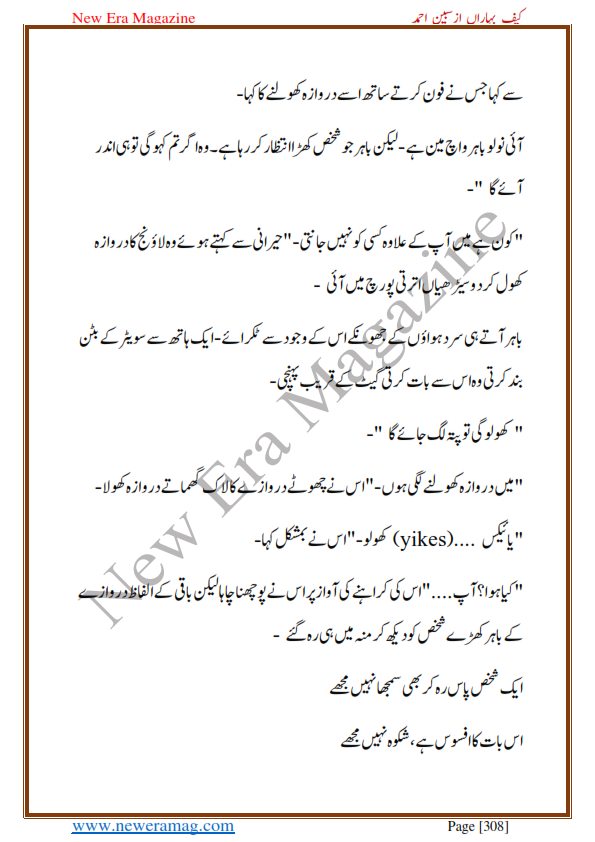 New Era Magazine کیف بہاراں از سبین احمد
سے کہا جس نے فون کرتے ساتھ اسے دروازہ کھولنے کا کہا-
آئی نو لو باہر واچ مین ہے-لیکن باہر جو شخص کھڑا انتظار کر رہا ہے۔ وہ اگر تم کہو گی تو ہی اندر
آئے گا "-
"کون ہے میں آپ کے علاوہ کسی کو نہیں جانتی-"حیرانی سے کہتے ہوئے وہ لاؤنج کا دروازہ
کھول کر دو سیڑھیاں اترتی پورچ میں آئی -
باہر آتے ہی سرد ہواؤں کے جھونکے اس کے وجود سے ٹکرائے-ایک ہاتھ سے سویٹر کے بٹن
بند کرتی وہ اس سے بات کرتی گیٹ کے قریب پہنچی-
" کھولو گی تو پتہ لگ جائے گا "-
"میں دروازہ کھولنے لگی ہوں-"اس نے چھوٹے دروازے کا لاک گھماتے دروازہ کھولا-
"یائیکس ....(yikes) کھولو-"اس نے بمشکل کہا-
"کیا ہوا؟ آپ...."اس کی کراہنے کی آواز پر اس نے پوچھنا چاہا لیکن باقی کے الفاظ دروازے
کے باہر کھڑے شخص کو دیکھ کر منہ میں ہی رہ گئے -
ایک شخص پاس رہ کر بھی سمجھا نہیں مجھے
اس بات کا افسوس ہے، شکوہ نہیں مجھے
New Era Magazine
www.neweramag.com Page [308]